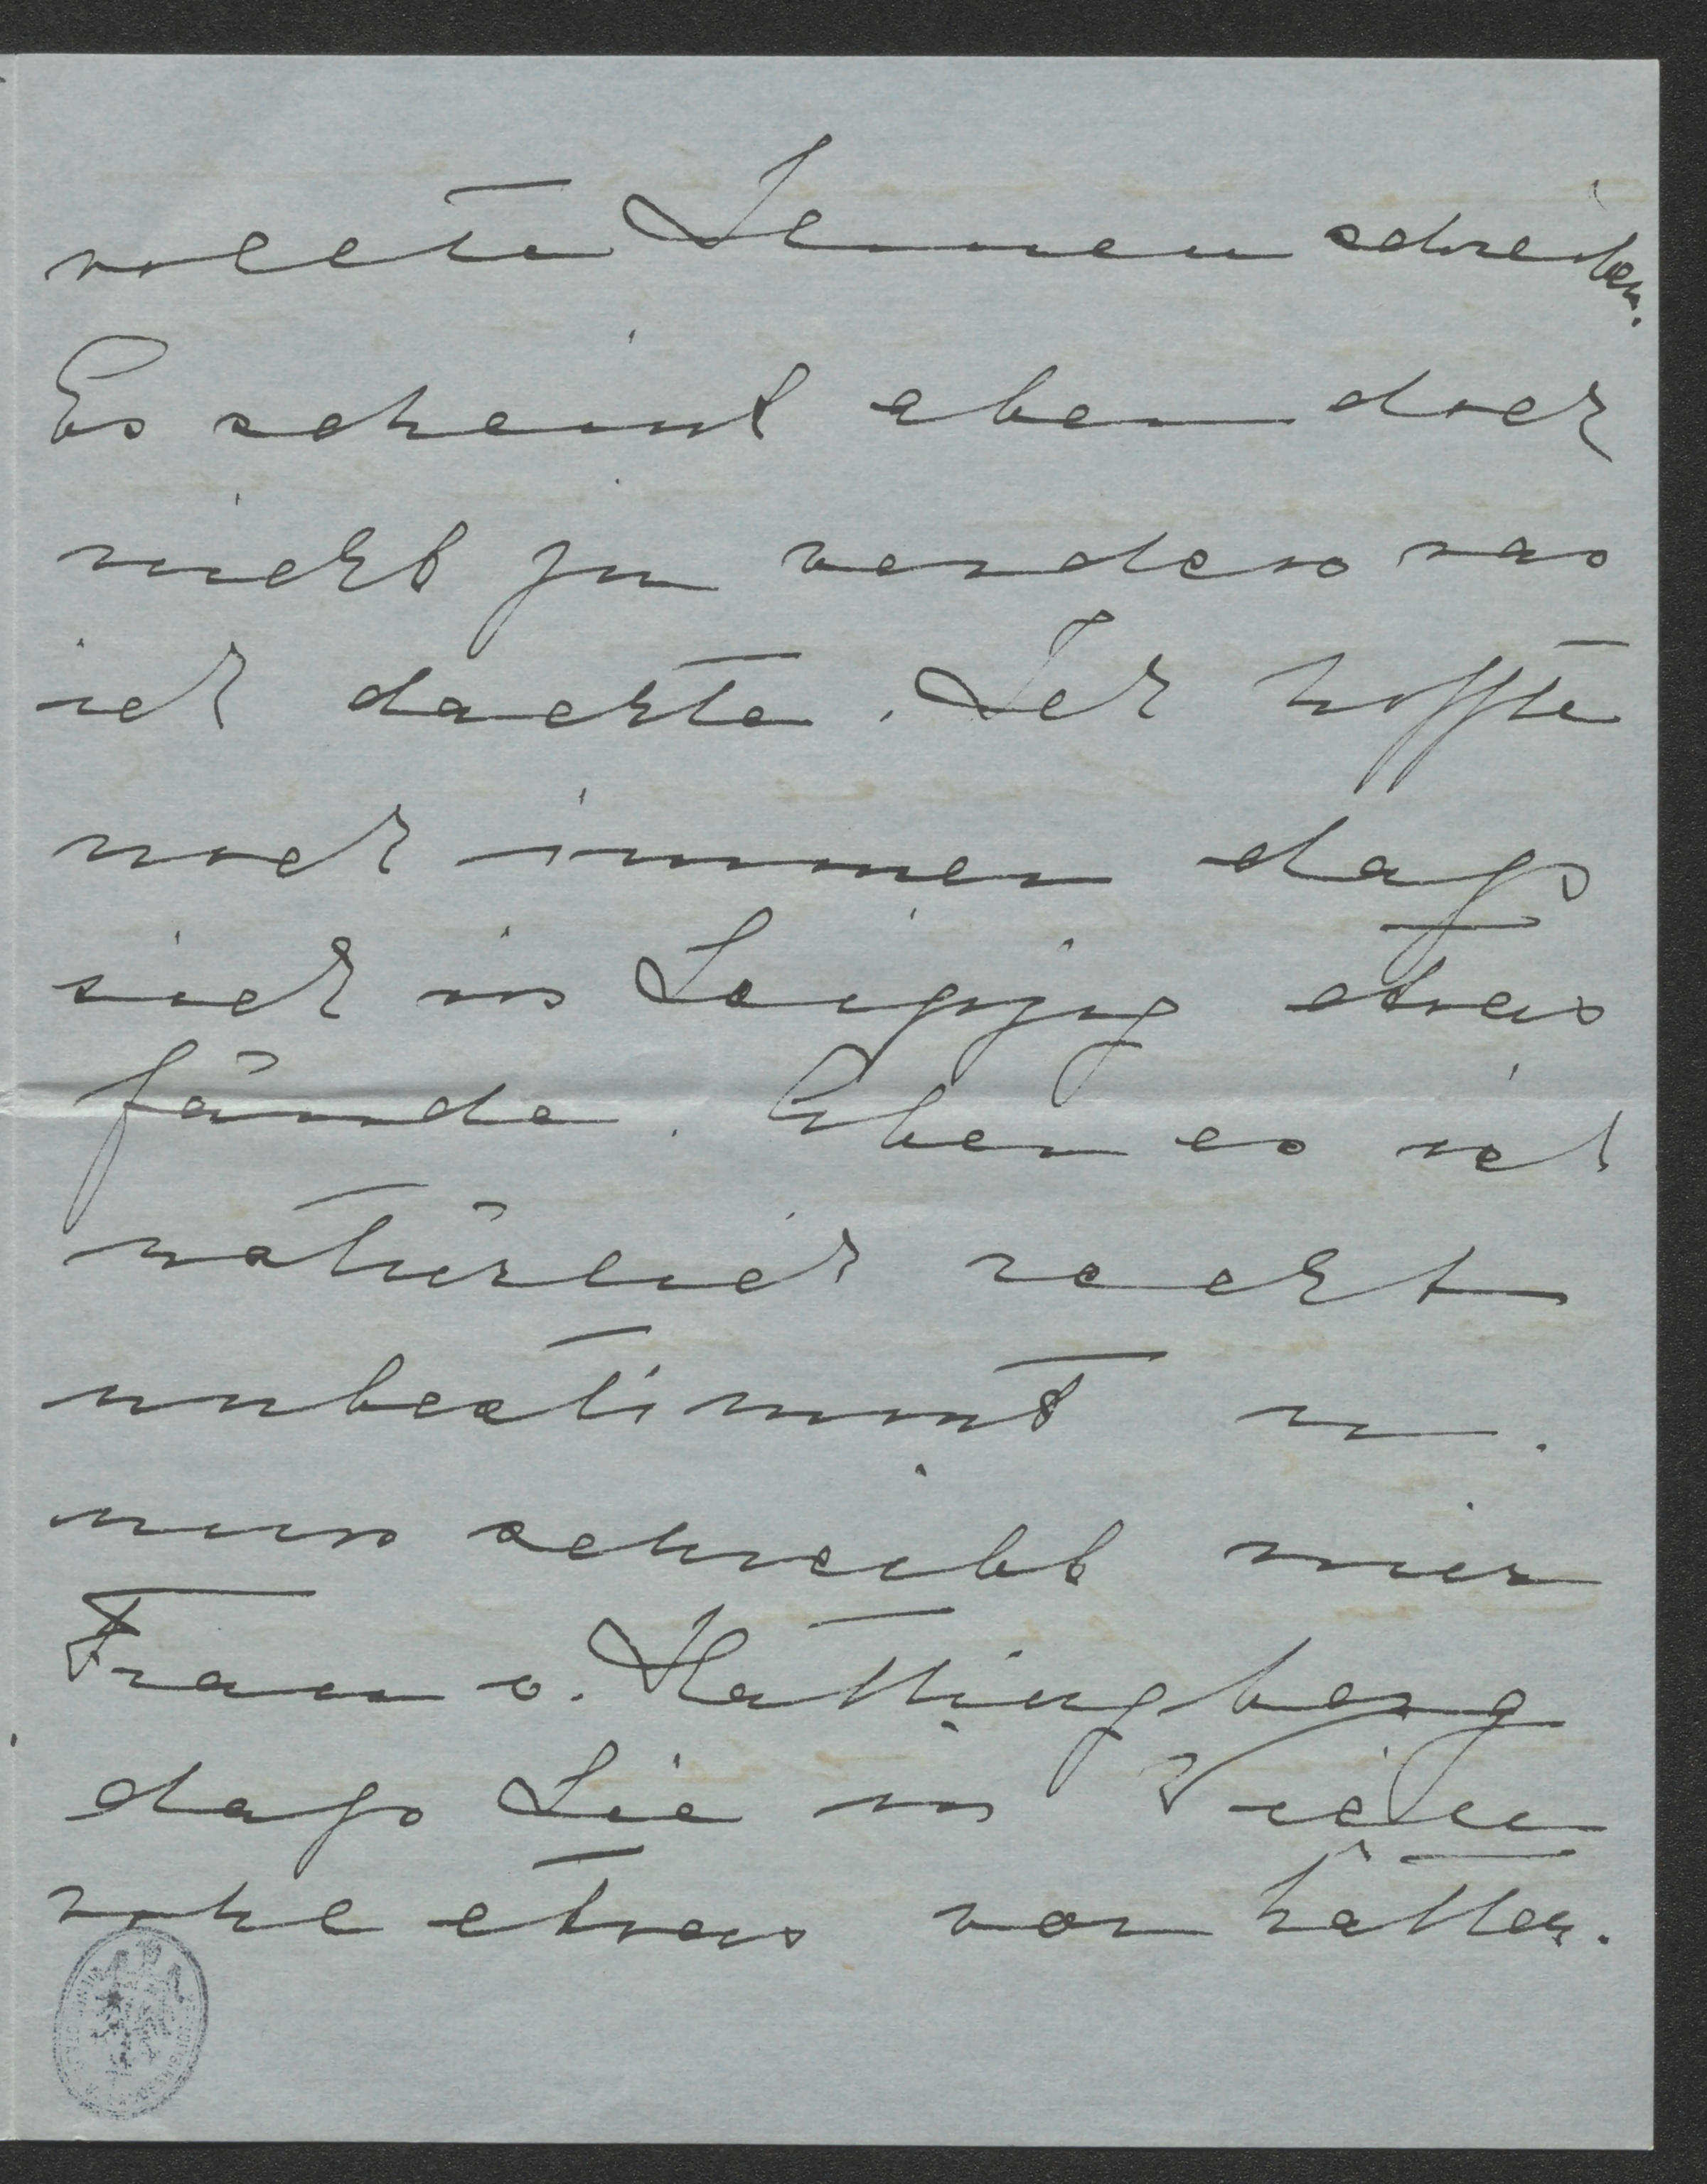 wollte Ihnen schreiben.
Es scheint eben doch
nicht zu werden was
ich dachte. Ich hoffte
noch immer daß
sich in Leipzig etwas
fände. Aber es ist
natürlich recht
unbestimmt u.
nun schreibt mir
Frau v. Hattingberg
daß Sie in Wien
wohl etwas vor hätten.